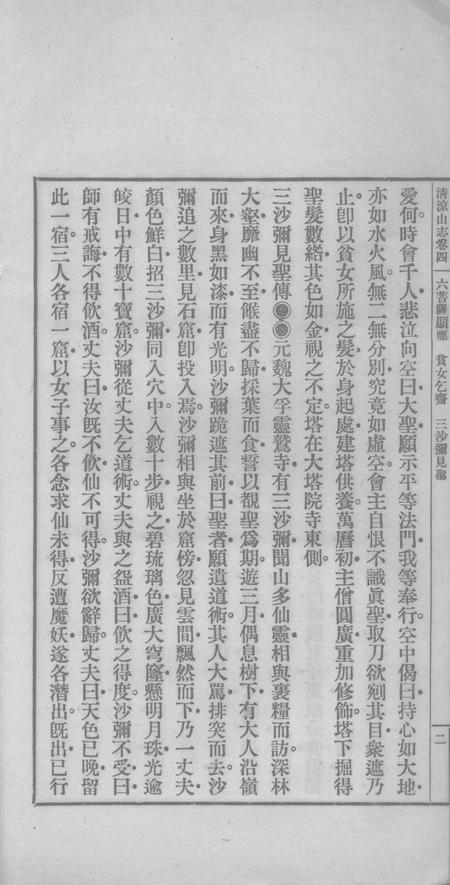 清涼山志卷四 六菩薩顯應 貧女乞齋 三沙彌見聖
二
愛。何時會千人。悲泣向空曰。大聖願示平等法門。我等奉行。空中偈曰。持心如大地。
亦如水火風。無二無分別。究竟如虛空。會主自恨不識眞聖。取刀欲剜其目。衆遮乃
止。卽以貧女所施之髮。於身起處建塔供養。萬曆初。主僧圓廣重加修飾。塔下掘得
聖髮數綹。其色如金。視之不定。塔在大塔院寺東側。
三沙彌見聖傳●●元魏大孚靈鷲寺有三沙彌。聞山多仙靈。相與裹糧而訪。深林
大壑。靡幽不至。餱盡不歸。採葉而食。誓以覩聖爲期。遊三月。偶息樹下。有大人沿嶺
而來。身黑如漆而有光明。沙彌跪遮其前曰。聖者願遺道術。其人大罵排突而去。沙
彌追之數里。見石窟。卽投入焉。沙彌相與坐於窟傍。忽見雲間飄然而下。乃一丈夫。
顏色鮮白。招三沙彌同入穴。中入數十步。視之碧琉璃色。廣大穹窿。懸明月珠。光逾
皎日。中有數十寶窟。沙彌從丈夫乞道術。丈夫與之盌酒曰。飲之得度。沙彌不受曰。
師有戒誨。不得飲酒。丈夫曰。汝旣不飲。仙不可得。沙彌欲辭歸。丈夫曰。天色已晚。留
此一宿。三人各宿一窟。以女子事之。各念求仙未得。反遭魔妖。遂各潛出。旣出已行